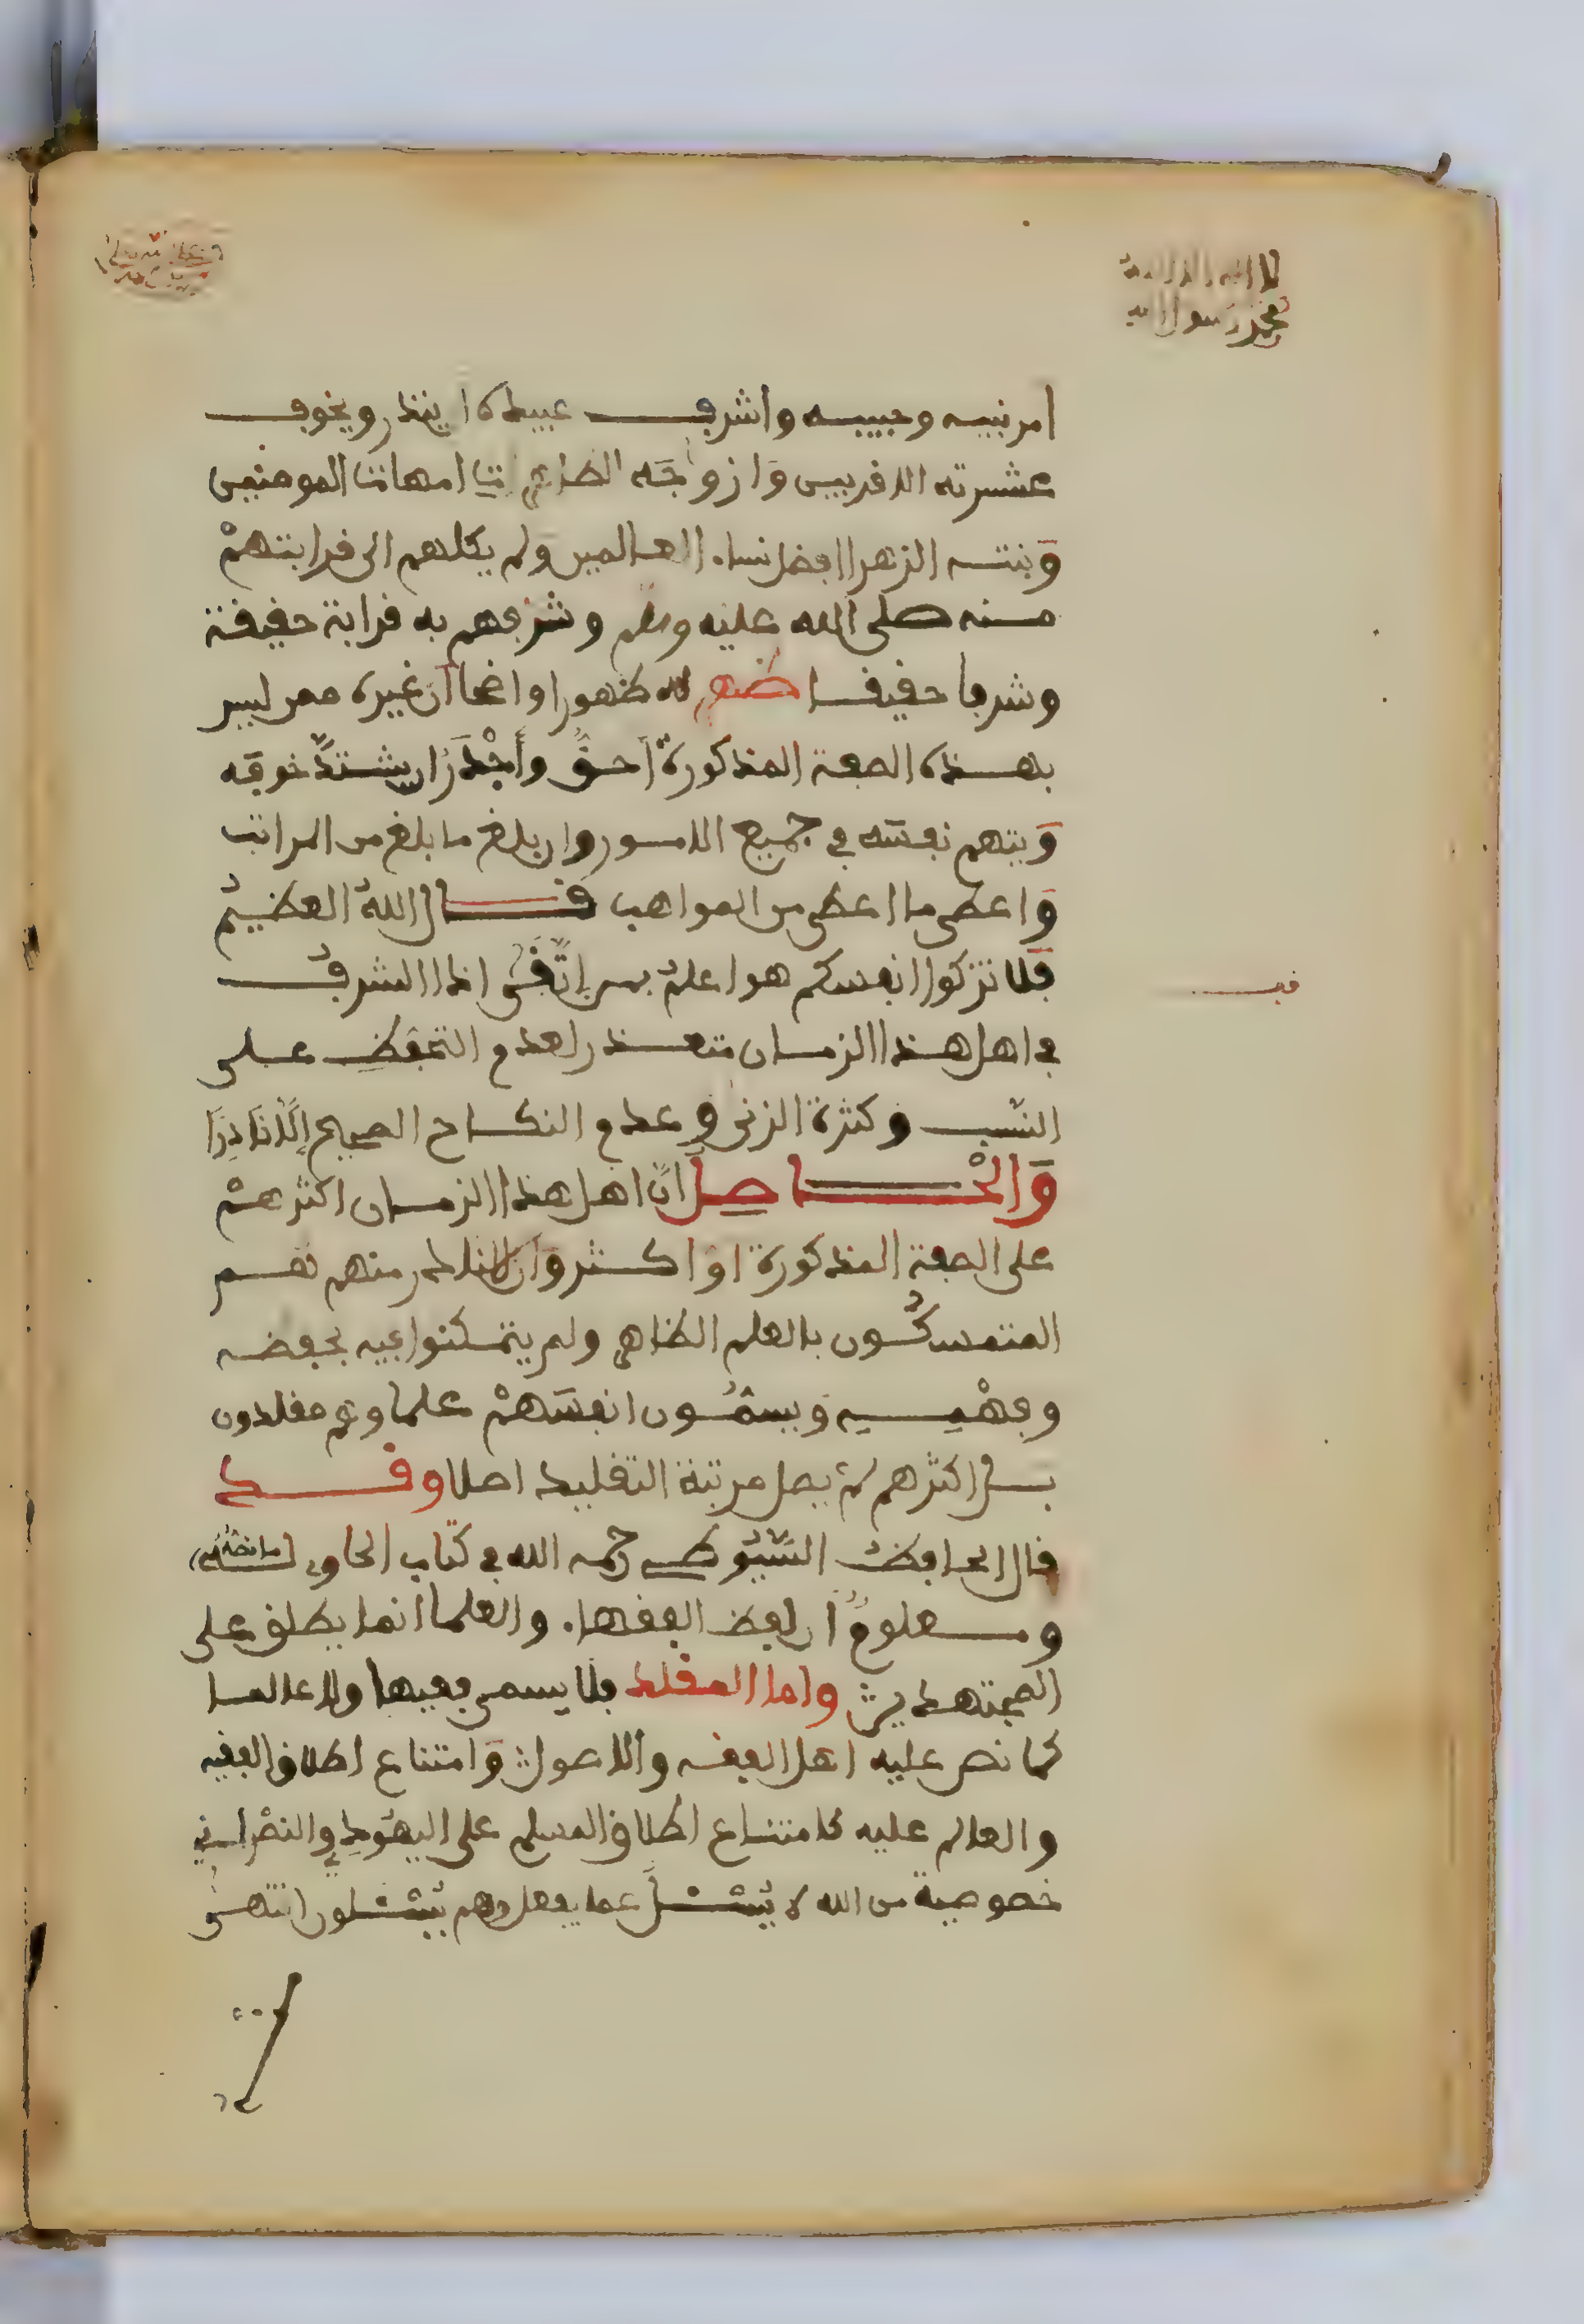 لا اله الا الله
محمد رسول الله
امر نبيه وحبيبه واشرف عبيده ان ينذر ويخوف
عشيرته الاقربين وَازواجَه الطاهرات امهات المومنين
وَبنته الزهرا افضل نساء العالمين ولم يكلهم الى قرابتهمْ
منه صلى الله عليه وسلم وشرفهم به قرابة حقيقة
وشرفا حقيقا ظهر لك ظهورا واضحا أن غيره ممن ليس
بهذه الصفة المذكورة أحقُّ وأَجْدَرُ ان يشتدَّ خوفه
وَيتهم نفسَه في جميع الامور وان بلغ ما بلغ من المراتب
وَاعطى ما اعطى من المواهب قال اللهُ العظيمُ
فلا تزكوا انفسكم هو اعلمُ بمن اتَّقى اذا الشرفُ
في اهل هذا الزمان متعذر لعدم التحفظِ على
النسَب وكثرة الزنى وعدم النكاح الصحيح إلَّا نَادِرًا
وَالْحاصل أنَّ اهل هذا الزمان اكثرهمْ
على الصفة المذكورة او اكثر وَان النادر منهم هم
المتمسكُون بالعلم الظاهر ولم يتمكنوا فيه بحفظه
وفهْمه ويسمُّون انفسَهمْ علما وهم مقلدون
بل اكثرهم لمْ يصل مرتبة التقليد اصلا وقد
قال الحافظ السُّيُوطي رحمه الله في كتاب الحاوي ما نصُّه
ومعلومٌ ان لفظ الفقهاء والعلما انما يطلق على
المجتهدين واما المقلد فلا يسمى فقيها ولا عالما
كما نص عليه اهل الفقه والاصول وَامتناع اطلاق الفقيه
والعالم عليه كامتناع اطلاق المسلم على اليهُودِي والنصْراني
خصوصية من الله لا يُسْئَلُ عما يفعل وهم يُسْئلون انتهى